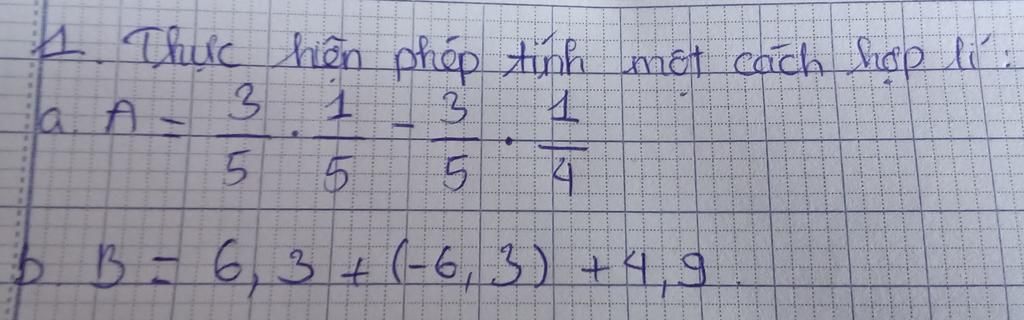 1. Thực hiện phép tính một cách hợp lí:
a. A = 3/5 . 1/5 - 3/5 . 1/4
b B = 6,3 + (-6,3) + 4,9